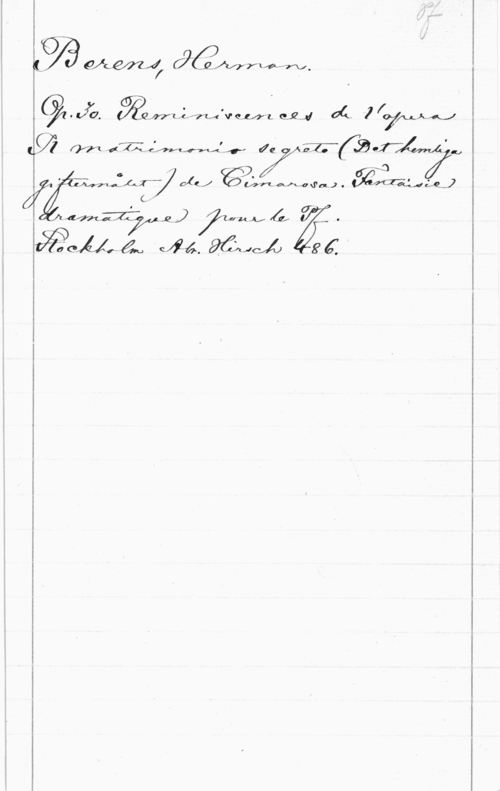 Pf
Berens, Herman.
Op. 30. Reminiscences de l'opera
Il matrimonio segreto (Det hemliga
giftermålet) de Cimarosa. Fantaisie
dramatique pour le Pf.
Stockholm Abr. Hirsch 486.